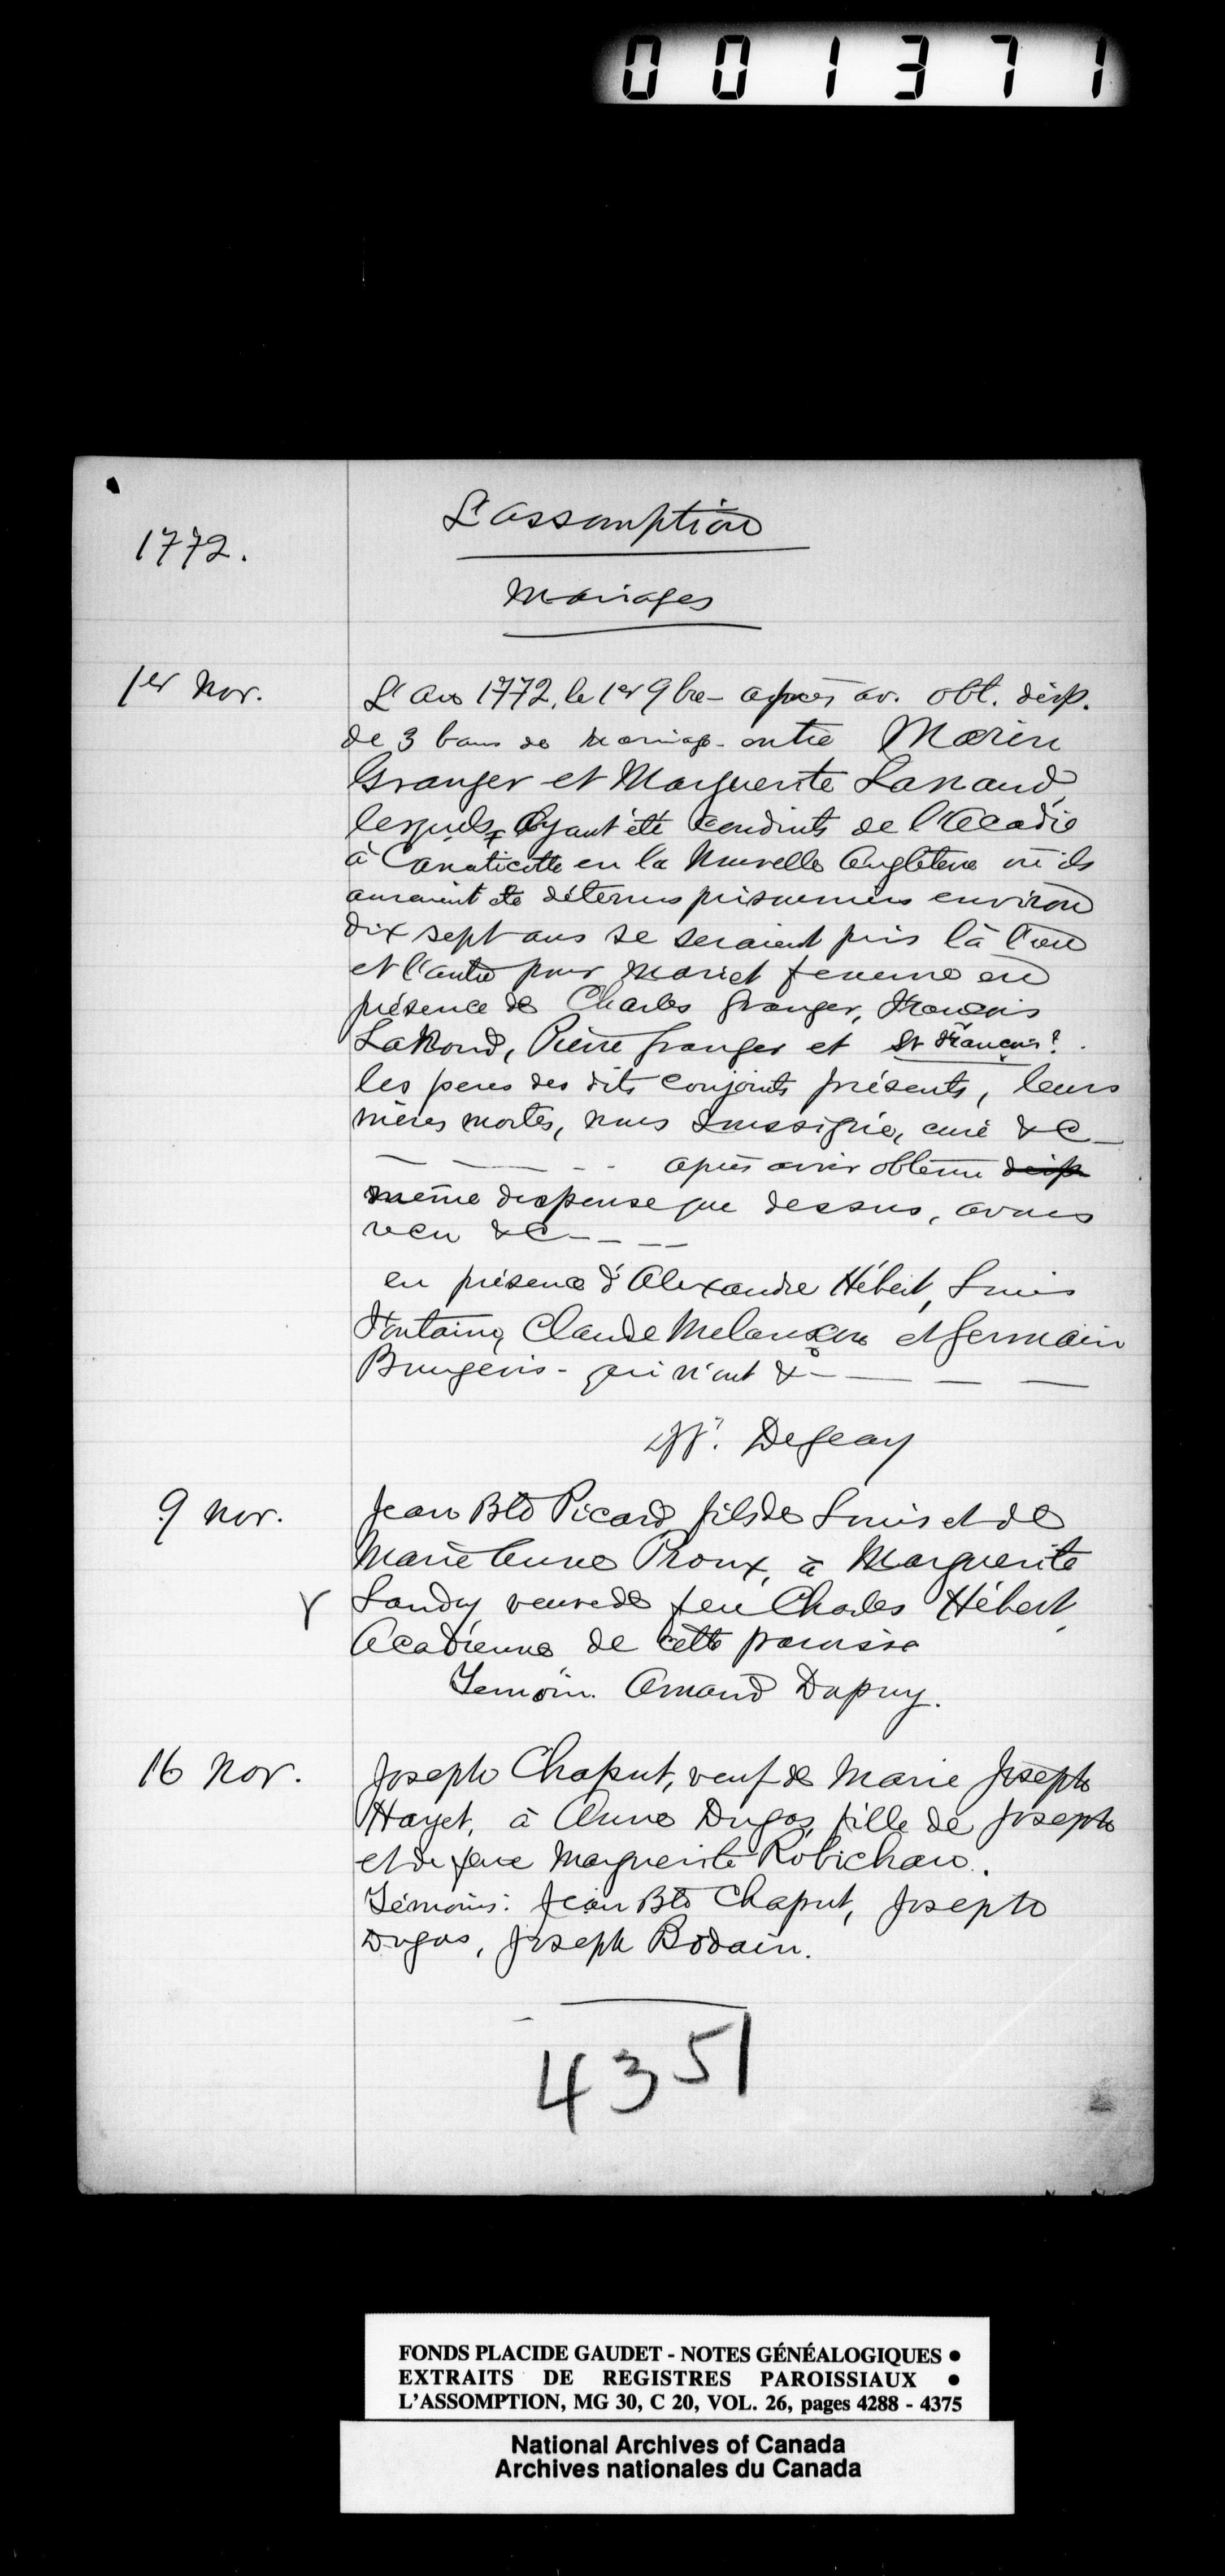 001371
L'assomption
1772.
Mariages
1er Nov.
L'an 1772, le 1er 9bre - après av. obt. disp.
de 3 bans de mariage entre Marin
Granger et Marguerite Lanaud,
lesquels ayant été conduits de l'Acadie
à Canaticotte en la Nouvelle Angleterre où ils
auraient été détenus prisonniers environ
dix sept ans se seraient pris là l'un
et l'autre pour mari et femme en
présence de Charles Granger, François
LaNoud, Pierre Granger et St François?
les peres des dits conjoints présents, leurs
mères mortes, nous soussigné, curé &c
après avoir obtenu disp
même dispense que dessus, avons
recu &c
en présence d'Alexandre Hébert, Louis
Fontaine, Claude Melanson et Germain
Bourgeois - qui n'ont &
Degeay
9 Nov.
Jean Bte Picard fils de Louis et de
Marie Anne Proux, à Marguerite
Landry veuve de feu Charles Hébert,
Acadienne de cette paroisse
Temoin. Amand Dupuy.
16 Nov.
Joseph Chaput, veuf de Marie Joseph
Hayet, à Anne Dugas, fille de Joseph
et de feue Marguerite Robichau.
Témoins: Jean Bte Chaput, Joseph
Dugas, Joseph Bodain.
4351
FONDS PLACIDE GAUDET - NOTES GÉNÉALOGIQUES •
EXTRAITS DE REGISTRES PAROISSIAUX •
L'ASSOMPTION, MG 30, C 20, VOL. 26, pages 4288 - 4375
National Archives of Canada
Archives nationales du Canada